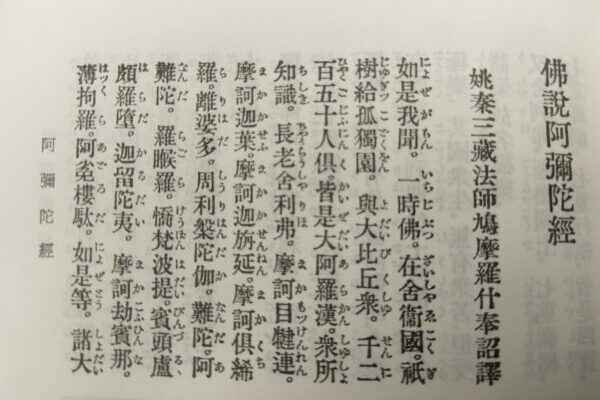 佛說阿彌陀經
姚秦三藏法師鳩摩羅什奉詔譯
如是我聞。一時佛。在舍衞國。祇
樹給孤獨園。與大比丘衆。千二
百五十人俱。皆是大阿羅漢。衆所
知識。長老舍利弗。摩訶目犍連。
摩訶迦葉。摩訶迦旃延。摩訶俱絺
羅。離婆多。周利槃陀伽。難陀。阿
難陀。羅睺羅。憍梵波提。賓頭盧
頗羅墮。迦留陀夷。摩訶劫賓那。
薄拘羅。阿㝹樓馱。如是等。諸大
阿彌陀經